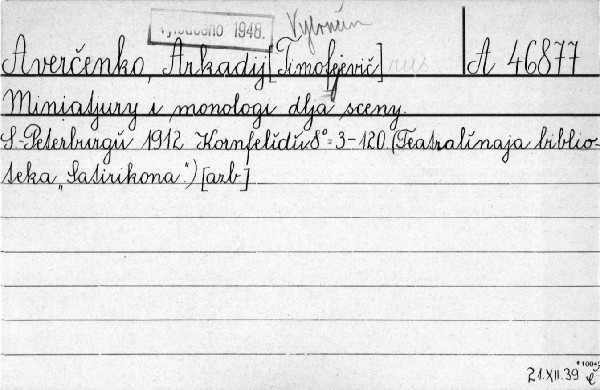 Vyřazeno 1948.
Averčenko, Arkadij [Timofejevič] rus
A 46877
Miniatjury i monologi dlja sceny.
S.-Peterburgŭ 1912 Kornfelĭdŭ 8° = 3-120 (Teatralĭnaja biblio-
teka „Satirikona“.) [azb.]
21.XII.39 č